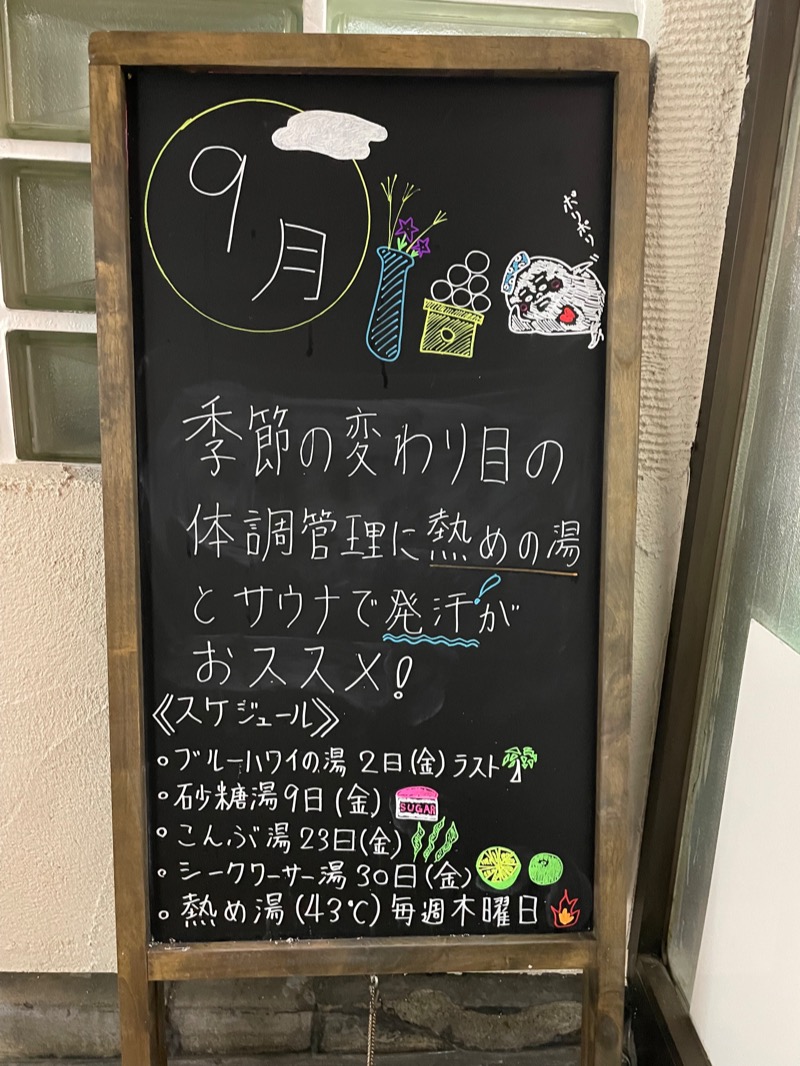 9月
ポリポリ
季節の変わり目の
体調管理に熱めの湯
とサウナで発汗が
おススメ!
《スケジュール》
・ブルーハワイの湯 2日(金)ラスト
・砂糖湯9日(金)
SUGAR
・こんぶ湯23日(金)
・シークワーサー湯30日(金)
・熱め湯(43℃)毎週木曜日